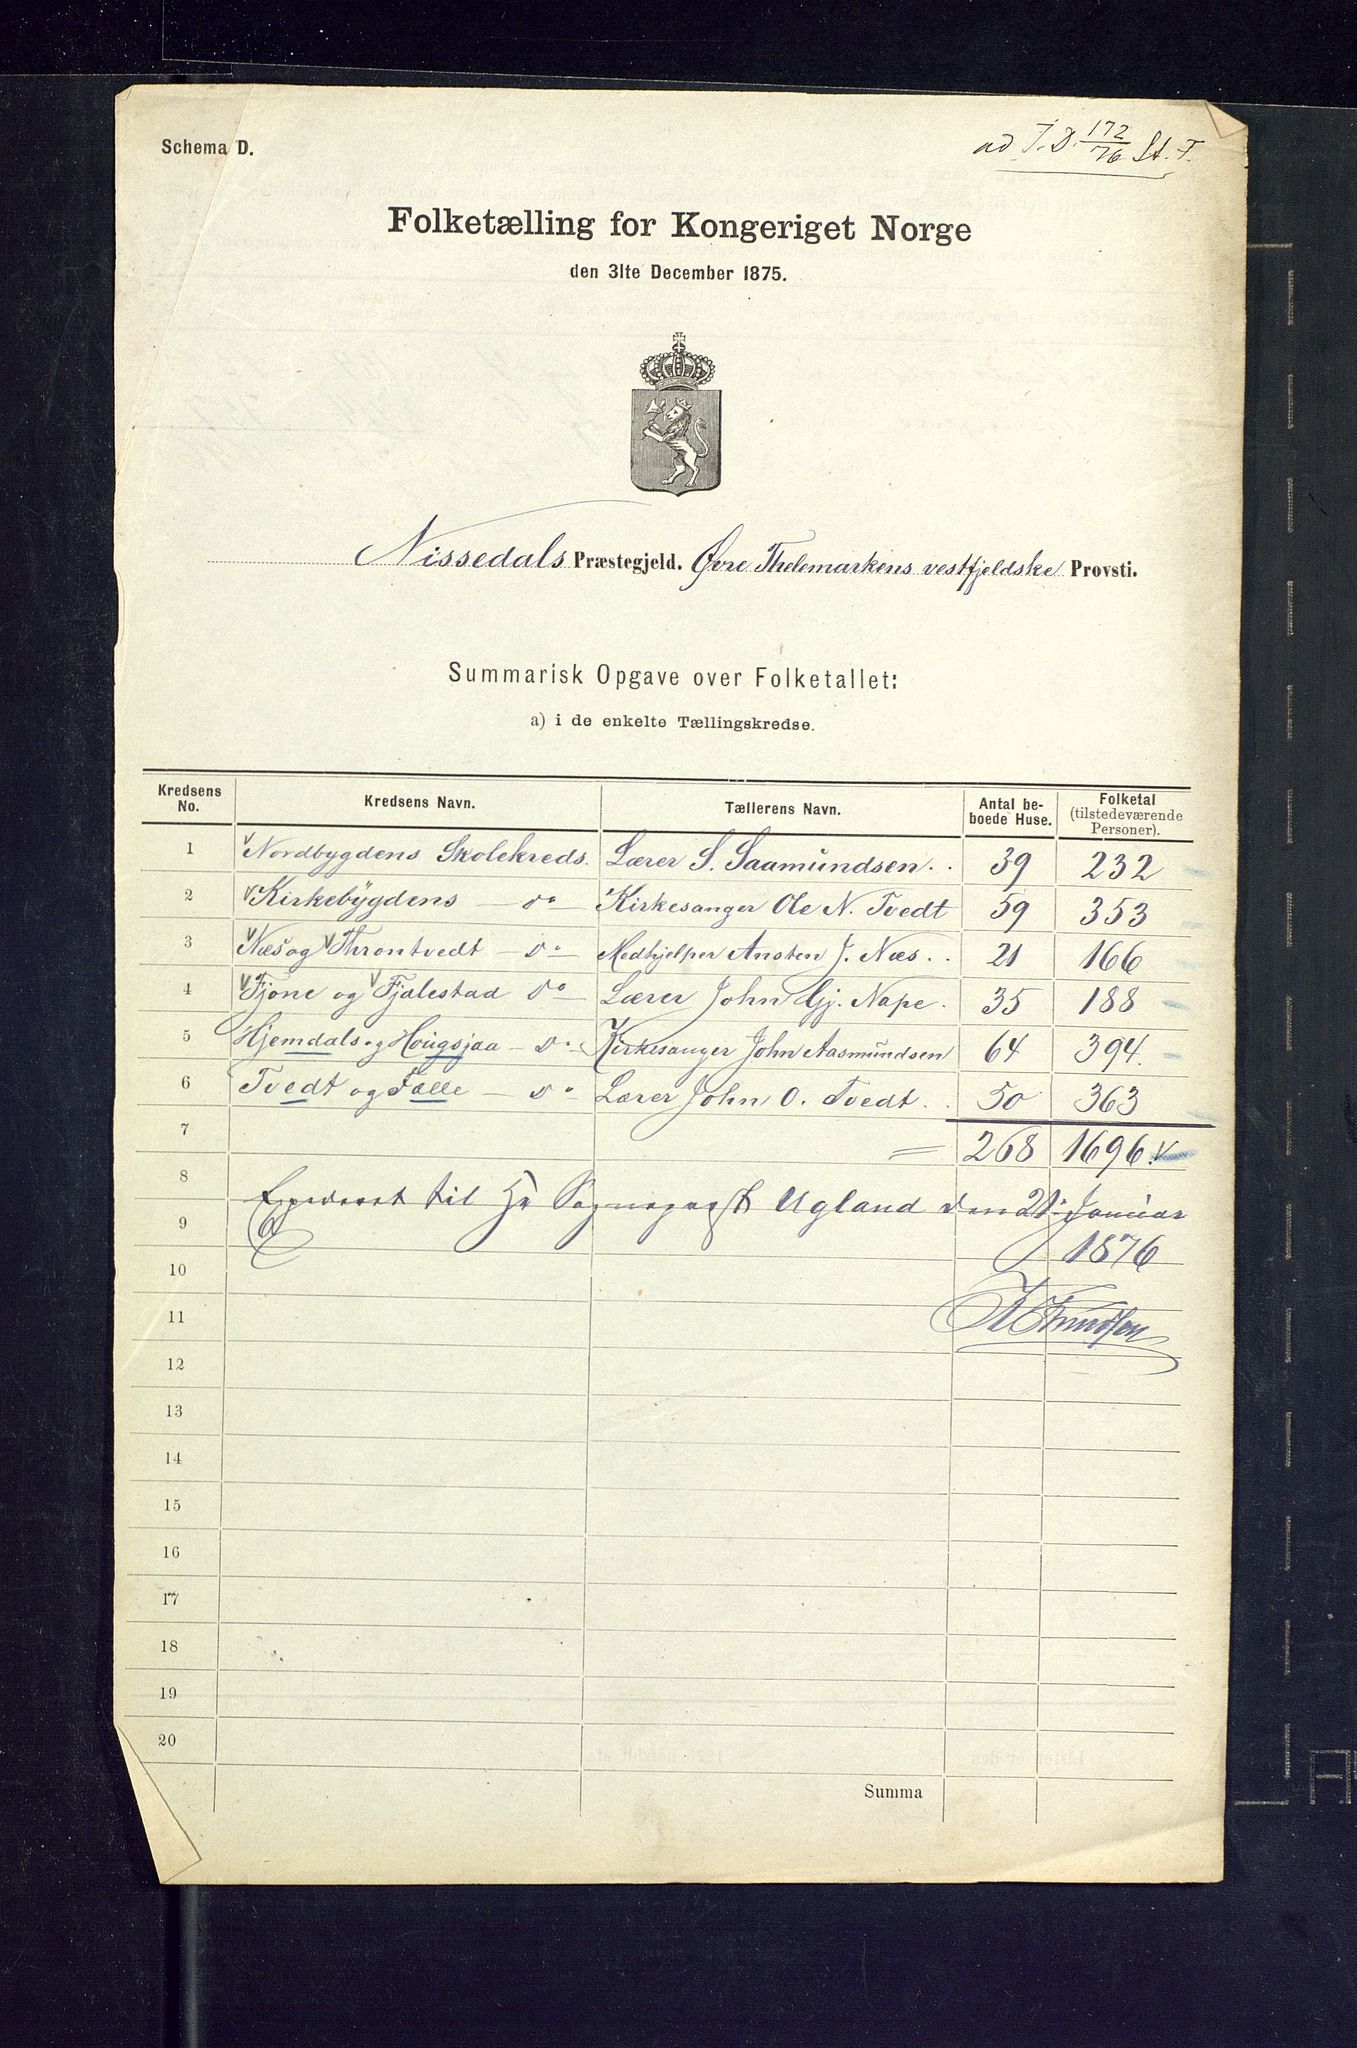 Schema D.
ad J. D. 172/76 St. T.
Folketælling for Kongeriget Norge
den 31te December 1875.
Nissedals Præstegjeld. Øvre Thelemarkens vestfjeldske Provsti.
Summarisk Opgave over Folketallet:
a) i de enkelte Tællingskredse.
Kredsens No. Kredsens Navn. Tællerens Navn. Antal beboede Huse. Folketal (tilstedeværende Personer).
1 Nordbygdens Skolekreds. Lærer S. Saamundsen. 39 232
2 Kirkebygdens — do — Kirkesanger Ole N. Tvedt 59 353
3 Næs og Throntvedt — do — Medhjelper Ansten J. Næs. 21 166
4 Fjone og Fjalestad do — Lærer John Gj. Nape. 35 188
5 Hjemdals og Hougsjaa — do — Kirkesanger John Aasmundsen 64 394.
6 Tvedt og Fælle — do Lærer John O. Tvedt. 50 363
7 = 268 1696.
8
Expederet til Hr Sognepræst Ugland den Januar
9
1876
10
11
12
13
14
15
16
17
18
19
20
Summa